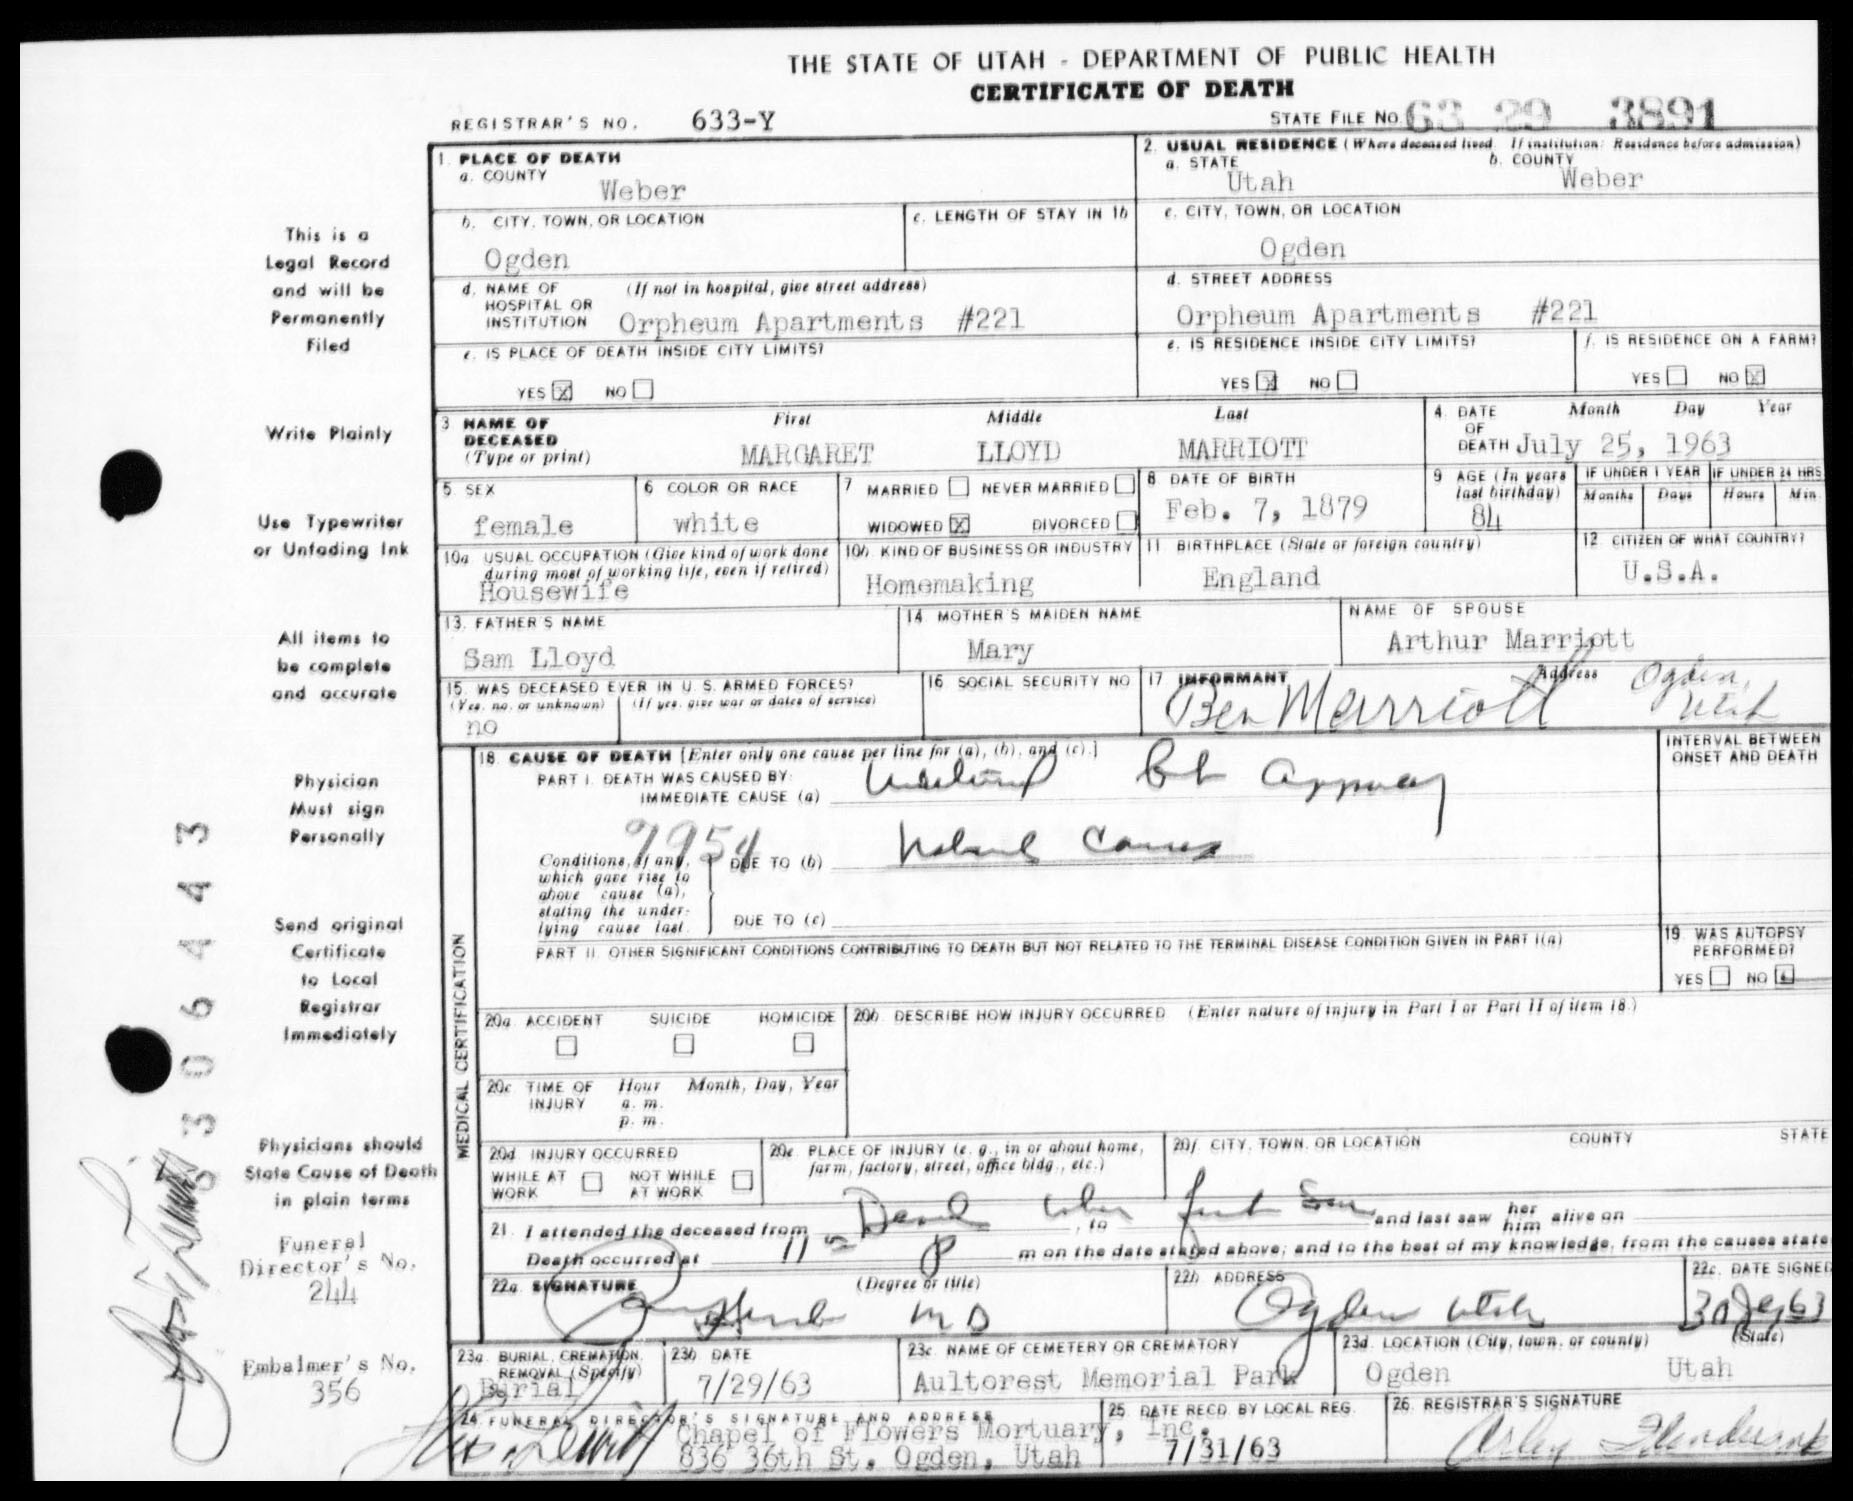 THE STATE OF UTAH - DEPARTMENT OF PUBLIC HEALTH
CERTIFICATE OF DEATH
REGISTRAR'S NO. 633-Y
STATE FILE NO. 63 29 3891
1. PLACE OF DEATH
a. COUNTY
Weber
2. USUAL RESIDENCE (Where deceased lived. If institution: Residence before admission)
a. STATE
Utah
b. COUNTY
Weber
b. CITY, TOWN, OR LOCATION
Ogden
c. LENGTH OF STAY IN 1b
c. CITY, TOWN, OR LOCATION
Ogden
d. NAME OF HOSPITAL OR INSTITUTION
(If not in hospital, give street address)
Orpheum Apartments #221
d. STREET ADDRESS
Orpheum Apartments #221
e. IS PLACE OF DEATH INSIDE CITY LIMITS?
YES X NO
e. IS RESIDENCE INSIDE CITY LIMITS?
YES X NO
f. IS RESIDENCE ON A FARM?
YES NO X
3 NAME OF DECEASED
(Type or print)
First Middle Last
MARGARET LLOYD MARRIOTT
4. DATE OF DEATH
Month Day Year
July 25, 1963
5 SEX
female
6 COLOR OR RACE
white
7 MARRIED NEVER MARRIED
WIDOWED X DIVORCED
8 DATE OF BIRTH
Feb. 7, 1879
9 AGE (In years last birthday)
84
IF UNDER 1 YEAR
Months Days
IF UNDER 24 HRS.
Hours Min.
10a USUAL OCCUPATION (Give kind of work done during most of working life, even if retired)
Housewife
10b. KIND OF BUSINESS OR INDUSTRY
Homemaking
11 BIRTHPLACE (State or foreign country)
England
12 CITIZEN OF WHAT COUNTRY?
U.S.A.
13. FATHER'S NAME
Sam Lloyd
14 MOTHER'S MAIDEN NAME
Mary
NAME OF SPOUSE
Arthur Marriott
15. WAS DECEASED EVER IN U. S. ARMED FORCES?
(Yes, no, or unknown) (If yes, give war or dates of service)
no
16 SOCIAL SECURITY NO
17 INFORMANT
Ben Marriott
Address
Ogden, Utah
18 CAUSE OF DEATH [Enter only one cause per line for (a), (b), and (c).]
PART I. DEATH WAS CAUSED BY:
IMMEDIATE CAUSE (a)
INTERVAL BETWEEN ONSET AND DEATH
7954
Conditions, if any, which gave rise to above cause (a), stating the underlying cause last.
DUE TO (b) Natural Causes
DUE TO (c)
PART II. OTHER SIGNIFICANT CONDITIONS CONTRIBUTING TO DEATH BUT NOT RELATED TO THE TERMINAL DISEASE CONDITION GIVEN IN PART I(a)
19. WAS AUTOPSY PERFORMED?
YES NO
MEDICAL CERTIFICATION
20a ACCIDENT SUICIDE HOMICIDE
20b. DESCRIBE HOW INJURY OCCURRED (Enter nature of injury in Part I or Part II of item 18.)
20c TIME OF INJURY
Hour Month, Day, Year
a. m.
p. m.
20d. INJURY OCCURRED
WHILE AT WORK NOT WHILE AT WORK
20e. PLACE OF INJURY (e. g., in or about home, farm, factory, street, office bldg., etc.)
20f. CITY, TOWN, OR LOCATION COUNTY STATE
21. I attended the deceased from Dead when first seen, to and last saw her him alive on
Death occurred at 11 P m on the date stated above; and to the best of my knowledge, from the causes state
22a. SIGNATURE (Degree or title)
M D
22b. ADDRESS
Ogden Utah
22c. DATE SIGNED
30 63
23a BURIAL, CREMATION, REMOVAL (Specify)
Burial
23b DATE
7/29/63
23c. NAME OF CEMETERY OR CREMATORY
Aultorest Memorial Park
23d. LOCATION (City, town, or county) (State)
Ogden Utah
24. FUNERAL DIRECTOR'S SIGNATURE AND ADDRESS
Chapel of Flowers Mortuary, Inc.
836 36th St. Ogden, Utah
25. DATE RECD. BY LOCAL REG.
7/31/63
26. REGISTRAR'S SIGNATURE
This is a
Legal Record
and will be
Permanently
Filed
Write Plainly
Use Typewriter
or Unfading Ink
All items to
be complete
and accurate
Physician
Must sign
Personally
Send original
Certificate
to Local
Registrar
Immediately
Physicians should
State Cause of Death
in plain terms
Funeral
Director's No.
244
Embalmer's No.
356
6306443